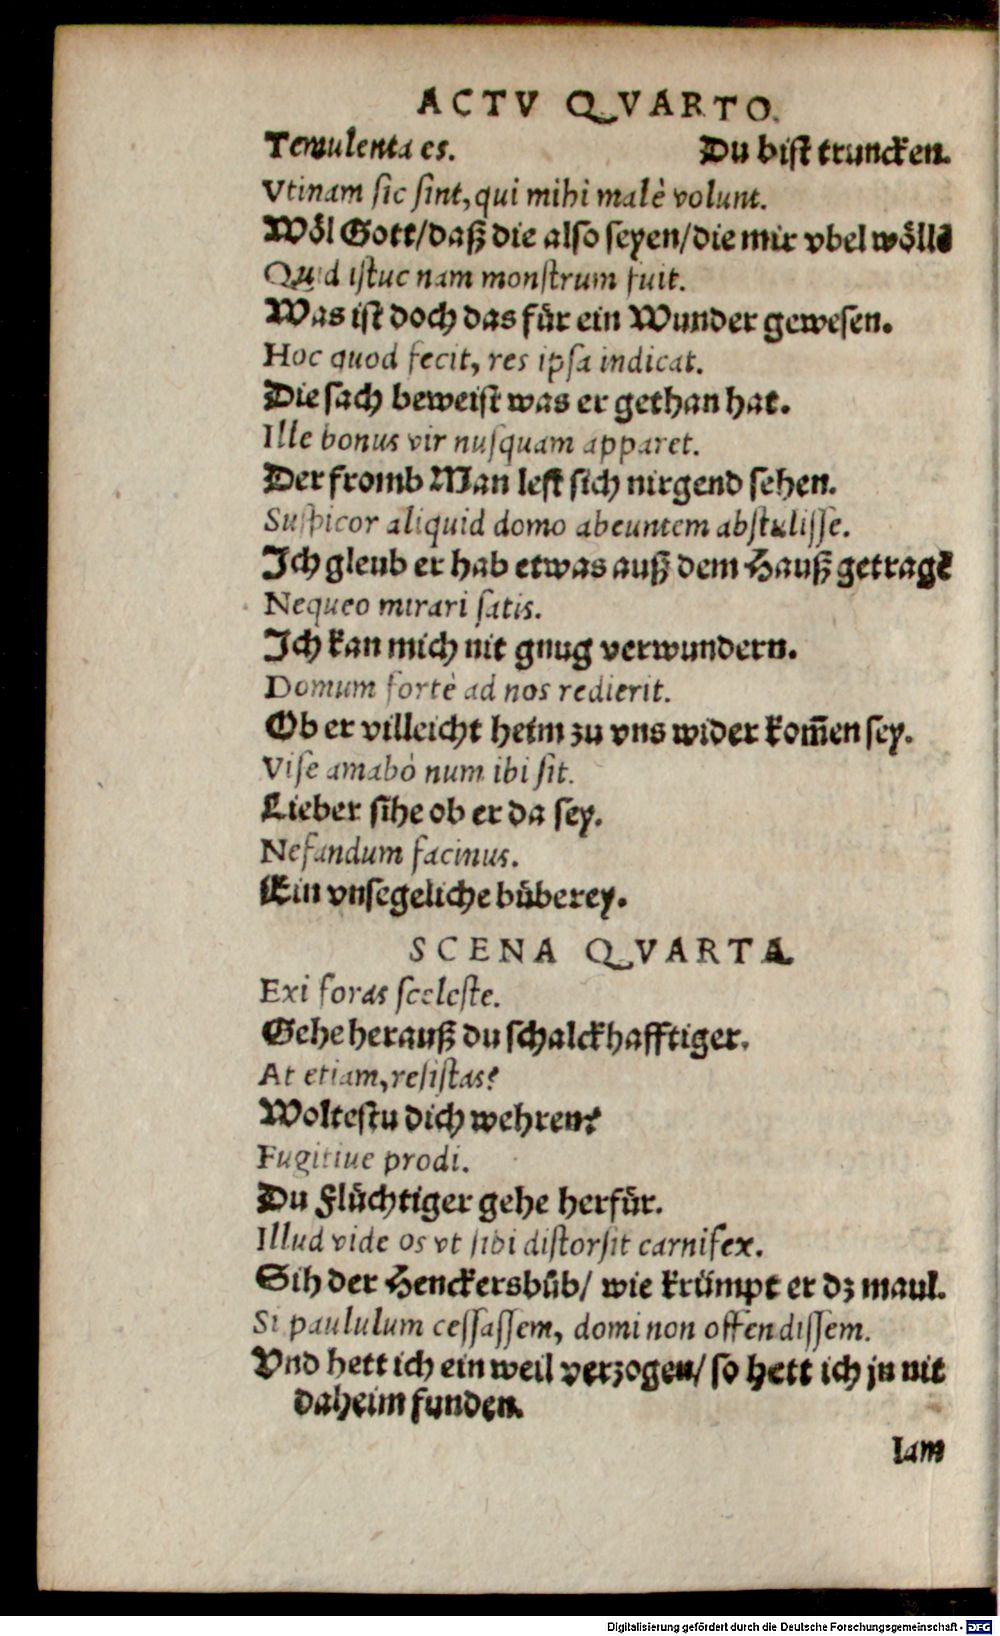 ACTV QVARTO.
Temulenta es. Du bist truncken.
Vtinam sic sint, qui mihi malè volunt.
Wöl Gott/daß die also seyen/die mir vbel wöllē
Quid istuc nam monstrum fuit.
Was ist doch das für ein Wunder gewesen.
Hoc quod fecit, res ipsa indicat.
Die sach beweist was er gethan hat.
Ille bonus vir nusquam apparet.
Der fromb Man lest sich nirgend sehen.
Suspicor aliquid domo abeuntem abstulisse.
Ich gleub er hab etwas auß dem Hauß getragē
Nequeo mirari satis.
Ich kan mich nit gnug verwundern.
Domum fortè ad nos redierit.
Ob er villeicht heim zu vns wider kom̄en sey.
Vise amabò num ibi sit.
Lieber sihe ob er da sey.
Nefandum facinus.
Ein vnsegeliche büberey.
SCENA QVARTA
Exi foras sceleste.
Gehe herauß du schalckhafftiger.
At etiam, resistas?
Woltestu dich wehren?
Fugitiue prodi.
Du Flüchtiger gehe herfür.
Illud vide os vt sibi distorsit carnifex.
Sih der Henckersbüb/ wie krümpt er dz maul.
Si paululum cessassem, domi non offendissem.
Vnd hett ich ein weil verzogen/ so hett ich jn nit
daheim funden.
Iam
Digitalisierung gefördert durch die Deutsche Forschungsgemeinschaft - DFG